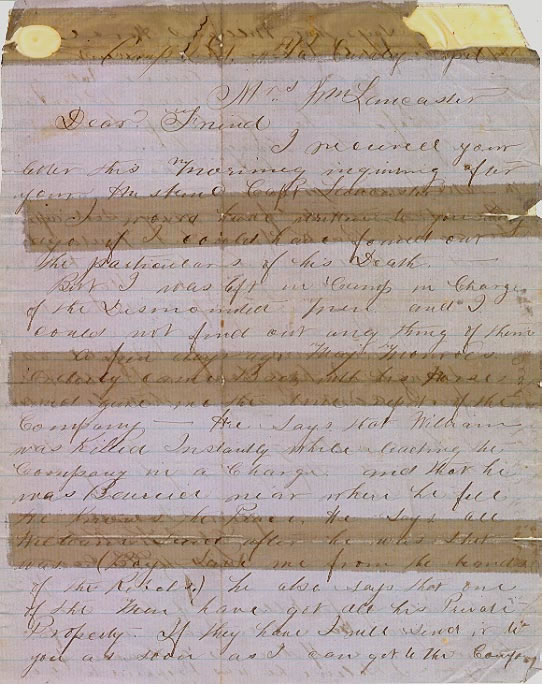 Mrs Wm Lancaster
Dear Friend
I received your
letter this Morning inquiring for
your Husband Capt Lancaster
I would have written to you
ago if I could have found out
the particulars of his Death —
But I was left in Camp in Charge
of the Dismounted men and I
could not find out any thing of them
A few days ago Maj Monroe's
Orderly came Back with his Horses
and gave me the of the
Company — He says that William
was Killed Instantly while leading the
Company in a Charge. and that he
was Bouried near where he fell
He Knows the Place. He says all
William said after he was Shot
was (Boys Save me from the hands
of the Rebels) he also says that one
of the Men have got all his Private
Property. If they have I will send it to
you as soon as I can get to the Company